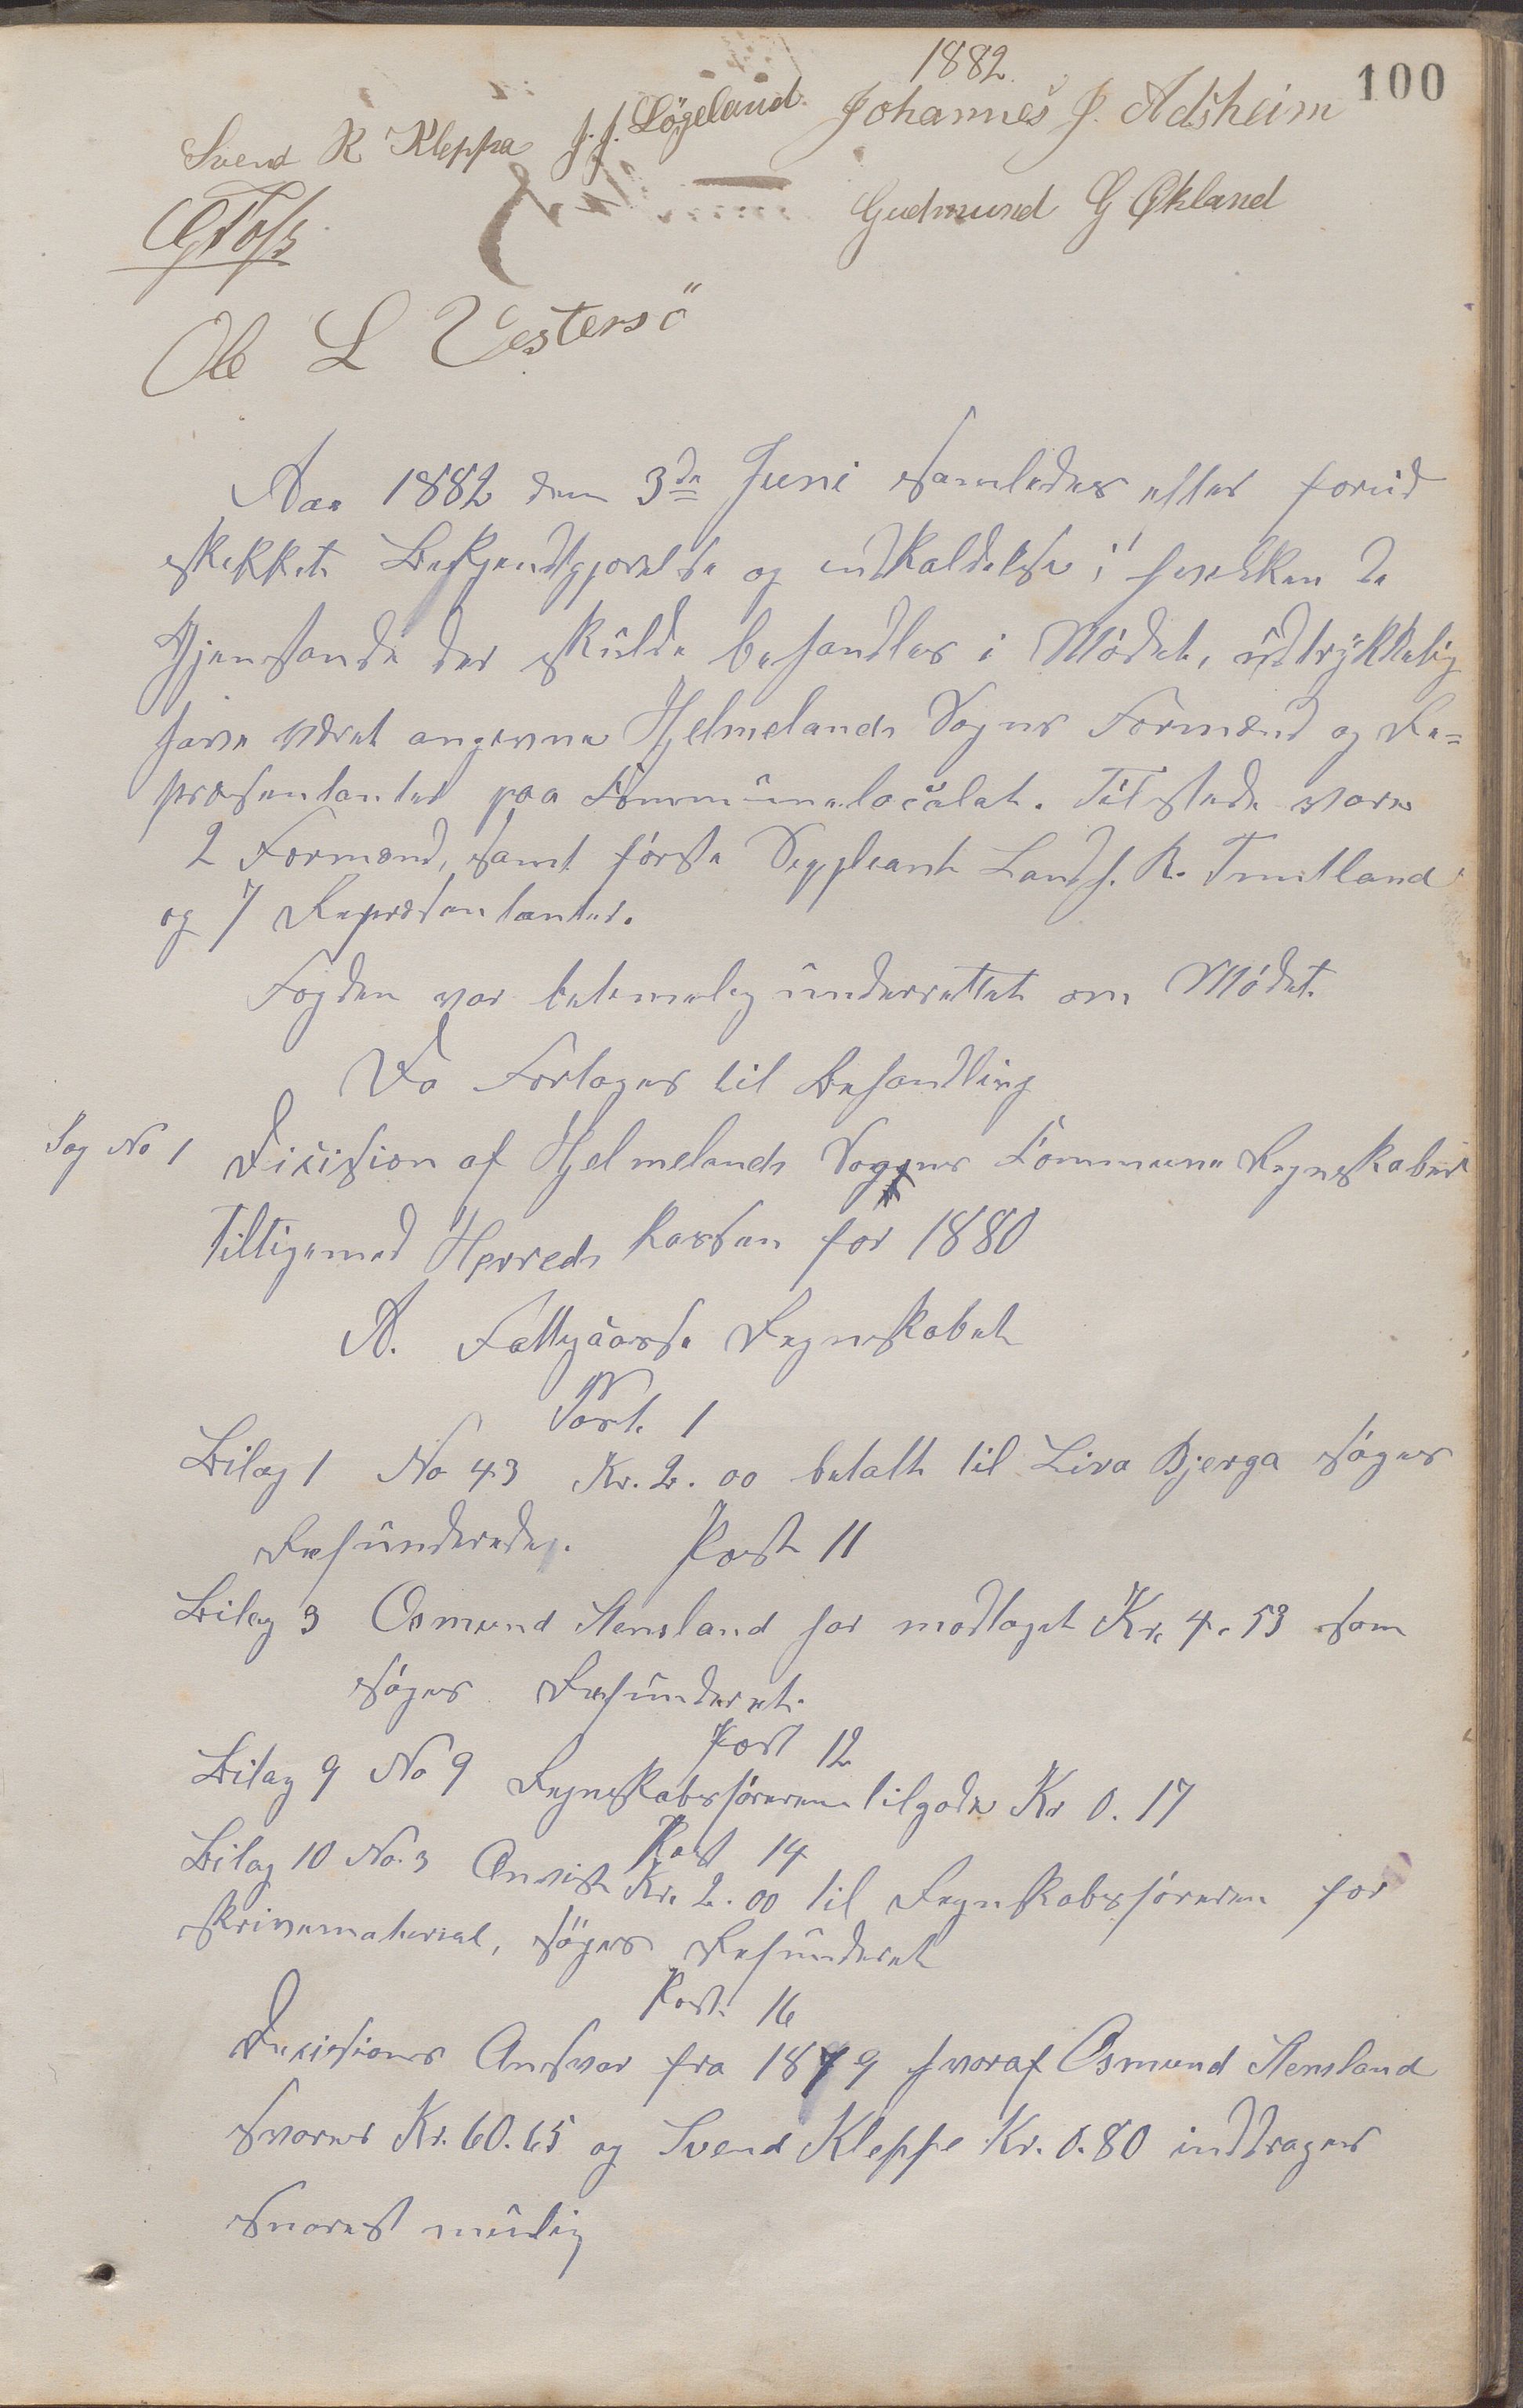 1882
100
Svend R Kleppa J. J. Lögeland Johannes J. Adsheim
Gudmund G Økland
Ole L Vestersö
Aar 1882 den 3de Juni samledes efter forud
skekket Bekjendtgjørelse og indkaldelse i hvilken de
Gjenstande der skulde behandles i Mødet, udtrykkelig
have været angivne Hjelmelands Sogns Formænd og Re=
præsentanter paa Kommunelocalet. Tilstede vare
2 Formænd, samt første Suppleant Landh. R. Tuntland
og 7 Repræsentanter.
Fogden var betimelig underrettet om Mødet.
Da Fortoges til Behandling
Sag No 1 Dicision af Hjelmelands Sogns Kommune Regnskaber
tilligemed Herreds kassen for 1880
A. Fattigkasse Regnskabet
Post. 1
Bilag 1 No 43 Kr. 2.00 betalt til Liva Bjerga søges
Refunderede. Post 11
Bilag 3 Osmund Stensland har modtaget Kr. 4.53 som
søges Refunderet.
Post 12
Bilag 9 No 9 Regnskabsføreren tilgode Kr 0.17
Post 14
Bilag 10 No. 3 Anvist Kr. 2.00 til Regnskabsføreren for
skrivematerial, søges Refunderet
Post. 16
Decisions Ansvar fra 1879 hvoraf Osmund Stensland
svarer Kr. 60.65 og Svend Kleppe Kr. 0.80 inddrages
snarest mulig